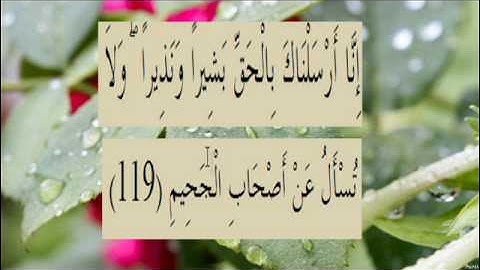 إِنَّا أَرْسَلْنَاكَ بِالْحَقِّ بَشِيرًا وَنَذِيرًا ۖ وَلَا
تُسْأَلُ عَنْ أَصْحَابِ الْجَحِيمِ (119)